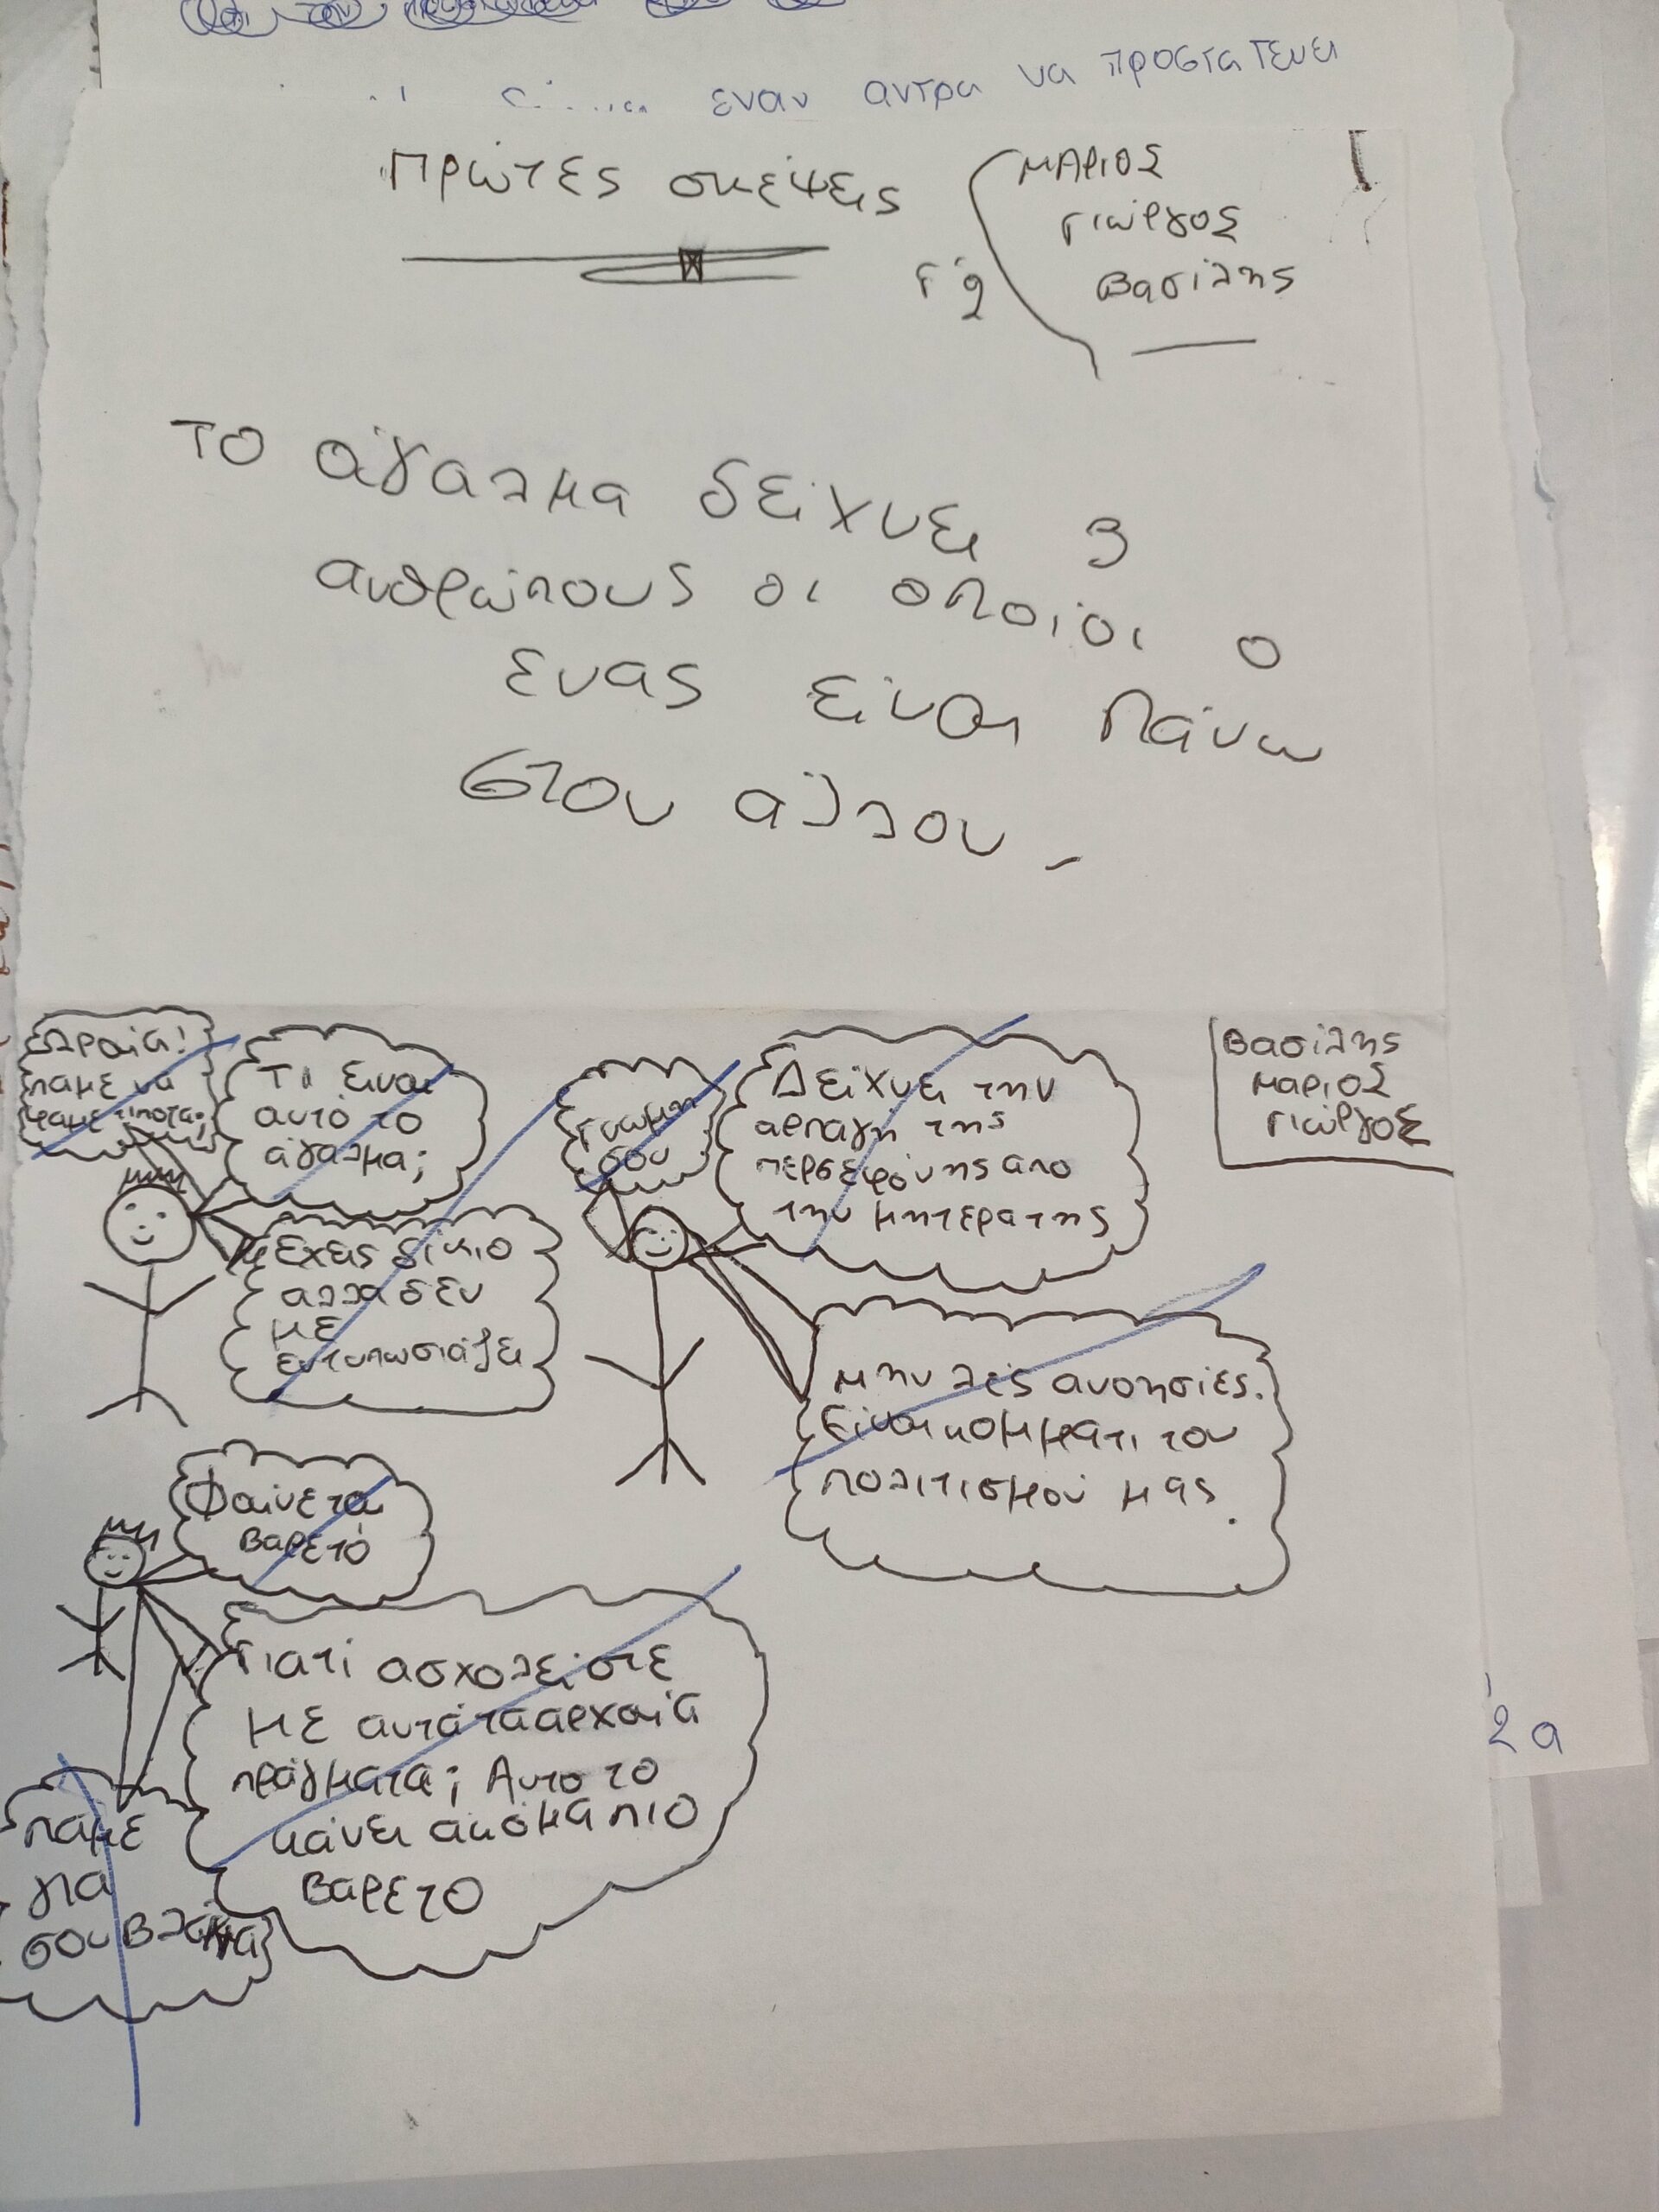 εναν αντρα να προστατευει
Πρώτες σκέψεις
ΜΑΡΙΟΣ
Γιώργος
Βασίλης
Γ'2
το άγαλμα δείχνει 3
ανθρώπους οι οποίοι ο
ένας είναι πάνω
στον άλλον
Βασίλης
μαριος
Γιώργος
Ωραία!
πάμε να
φάμε τίποτα;
Τι είναι
αυτό το
άγαλμα;
Γνώμη
σου
Δείχνει την
αρπαγή της
περσεφόνης απο
την μητερα της
Έχεις δίκιο
αλλα δεν
με
εντυπωσιάζει
μην λές ανοησίες.
Είναι κομμάτι του
πολιτισμού μας.
Φαίνεται
Βαρετό
Γιατί ασχολείστε
με αυτά τα αρχαία
πράγματα; Αυτο το
κάνει ακόμα πιο
Βαρετο
πάμε
για
σουβλάκια
2α